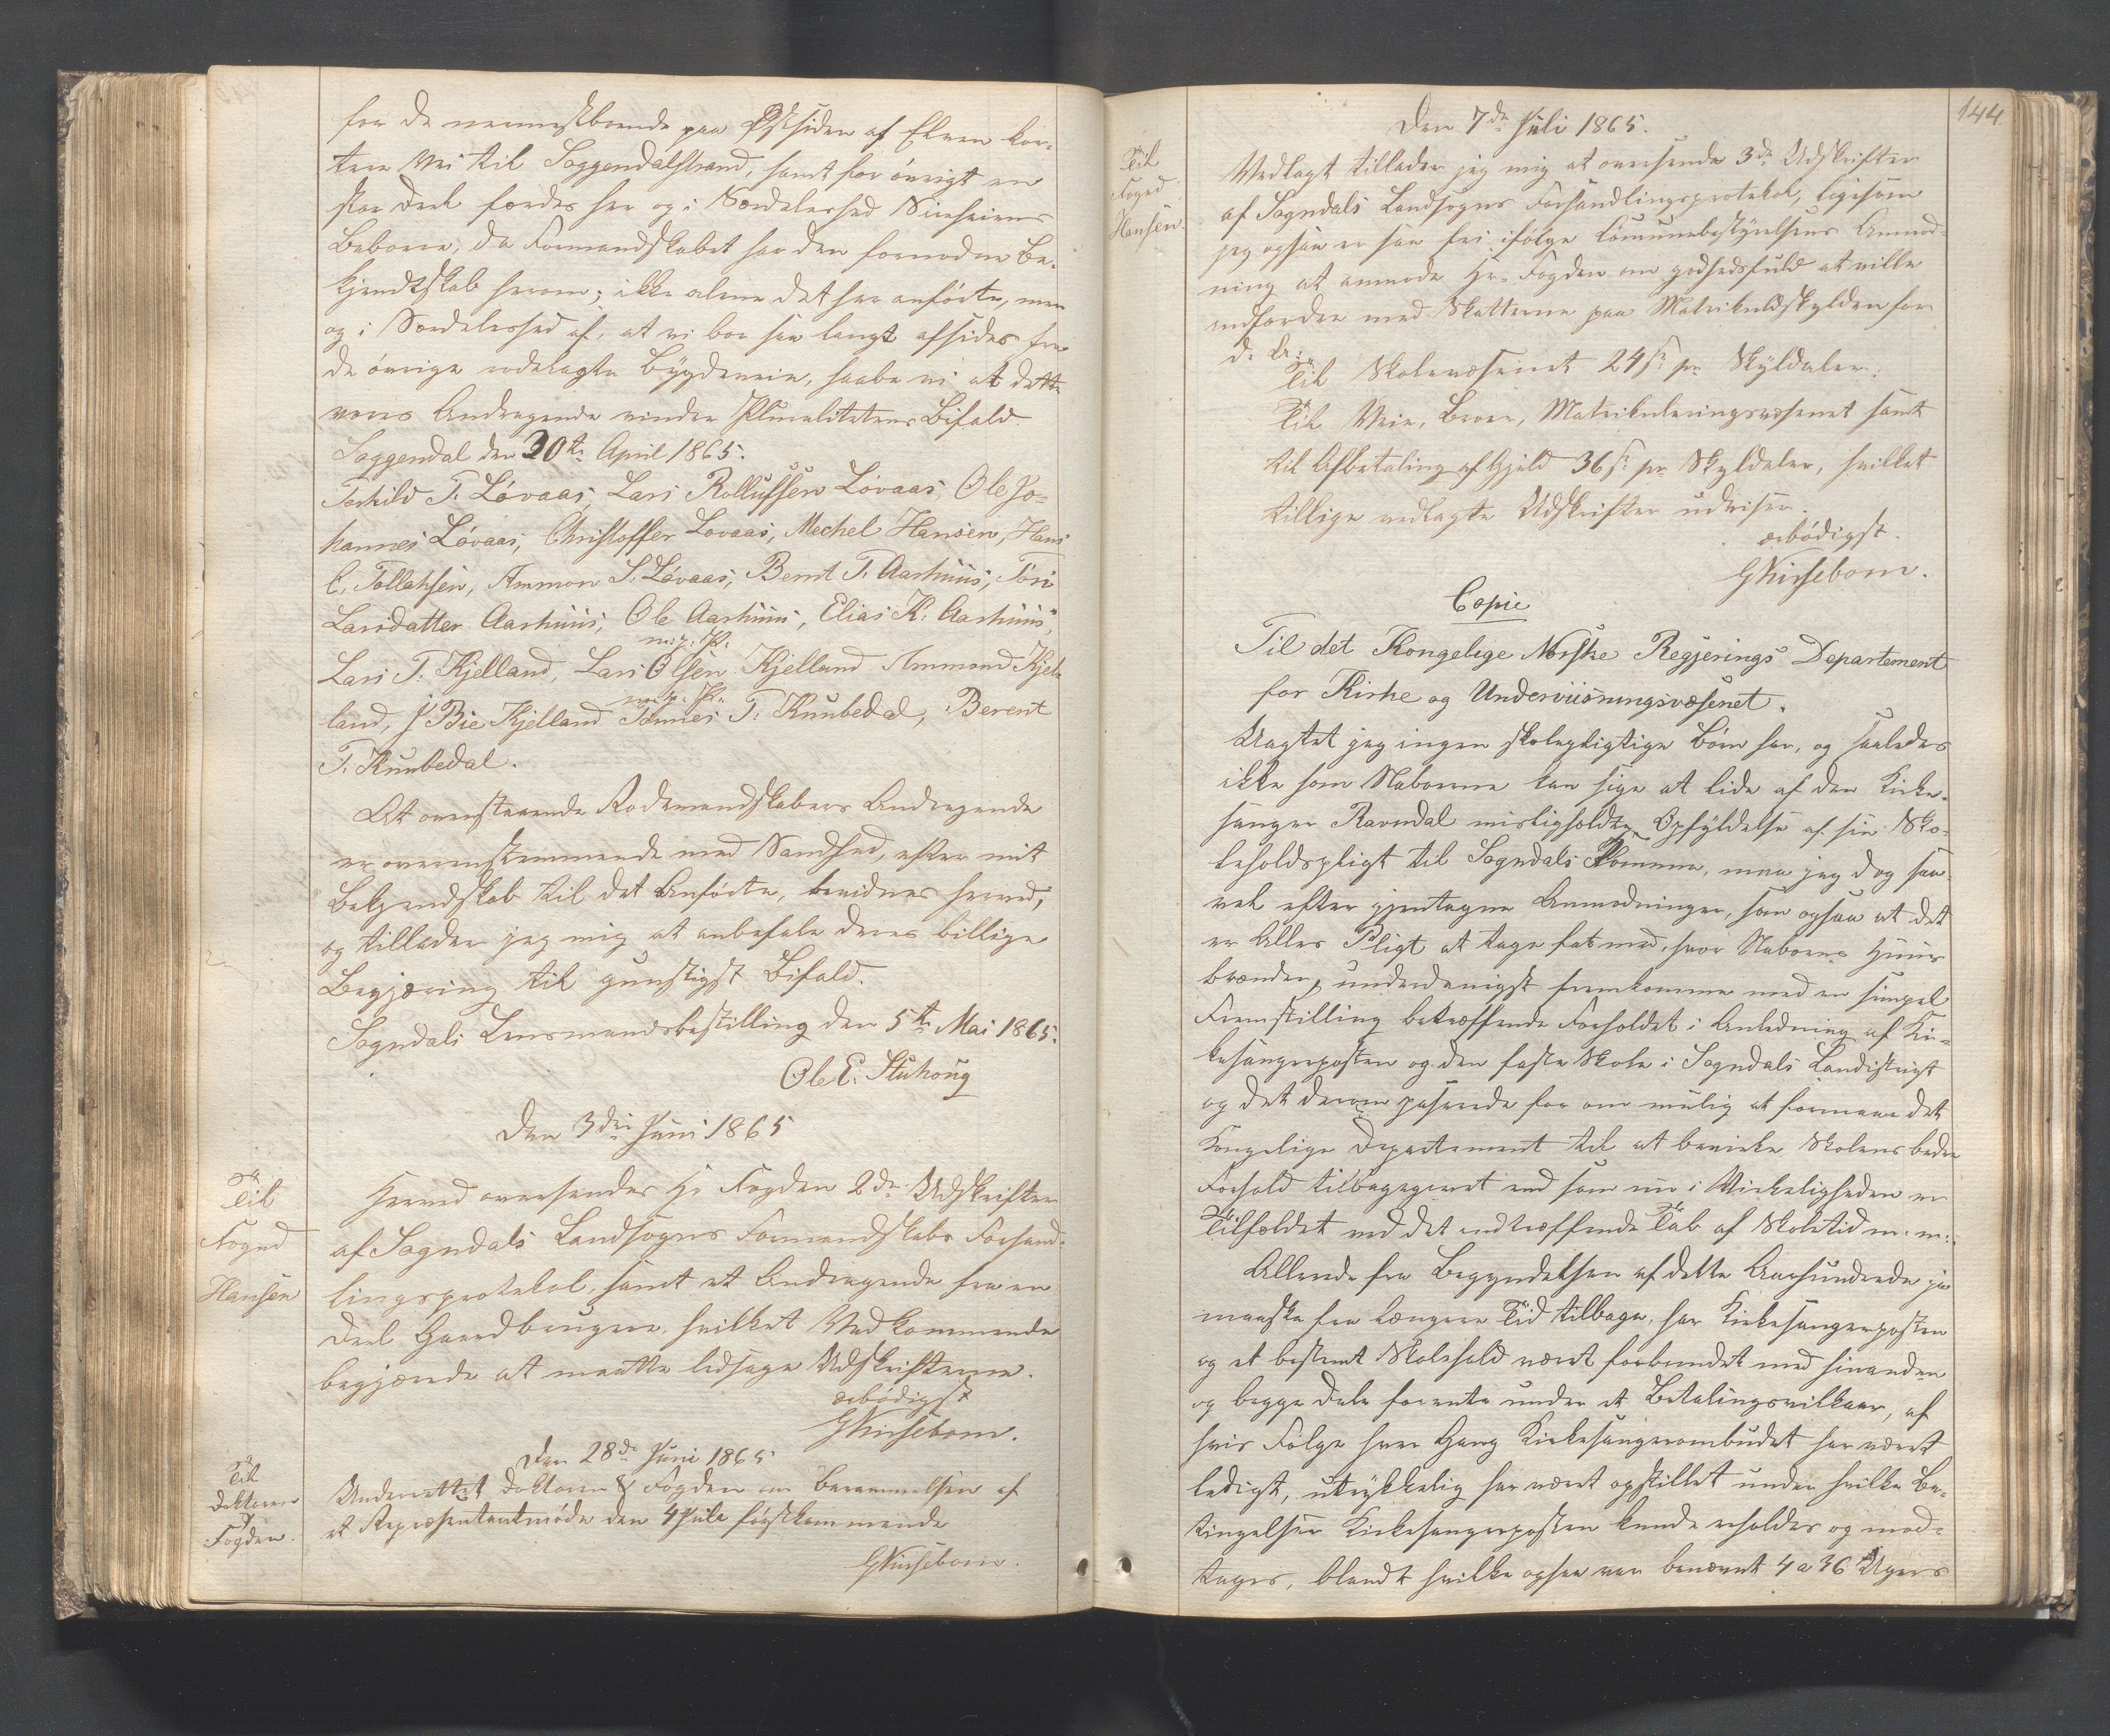 for de nærmestboende paa Østsiden af Elven kor-
tere Vei til Soggendalstrand, samt for øvrigt en
stor Deel færdes her og i Særdeleshed
Beboere, da Formandskabet har den fornødne Be-
kjendtskab herom; ikke alene det her anførte, men
og i Særdeleshed af, at vi bor saa langt afsides fra
de øvrige rodelagte Bygdeveie, haabe vi at dette
vores Andragende vinder Pluralitetens Bifald.
Soggendal den 30te April 1865.
Torkild T. Løvaas, Lars Rollufsen Løvaas, Ole Jo-
hannes Løvaas, Christoffer Lovaas, Mechel Hansen, Hans
C. Tollaksen, Ammon S. Løvaas, Bernt T. Aarhuus, Töri
Larsdatter Aarhuus, Ole Aarhuus, Elias K. Aarhuus,
m. p. P.
Lars T. Kjelland, Lars Olsen Kjelland Ammond Kjel-
m. p. P.
land, J Bie Kjelland Tønnes T. Kuubedal, Berent
T. Kuubedal.
At ovenstaaende Rodemandskabers Andragende
er overensstemmende med Sandhed, efter mit
Bekjendskab til det Anførte, bevidnes herved,
og tillader jeg mig at anbefale deres billige
Begjæring til gunstigst Bifald.
Sogndals Lensmandsbestilling den 5te Mai 1865.
Ole E. Stuhoug
Den 3die Juni 1865
Til
Foged
Hansen
Herved oversendes Hr Fogden 2de Udskrifter
af Sogndals Landsogns Formandskabs Forhand-
lingsprotokol, samt et Andragende fra en
Deel Gaardbrugere, hvilket Vedkommende
begjærede at maatte ledsage Udskrifterne.
ærbødigst
GKirsebom.
Den 28de Juni 1865
Til
Doktoren
og
Fogden.
Underrettet Doktoren & Fogden om Berammelsen af
et Repræsentantmøde den 4 Juli førstkommende
GKirsebom.
144
Den 7de Juli 1865.
Til
Foged
Hansen.
Vedlagt tillader jeg mig at oversende 3de Udskrifter
af Sogndals Landsogns Forhandlingsprotokol, ligesom
jeg ogsaa er saa fri ifølge Comunebestyrelsens Anmod-
ning at anmode Hr. Fogden om godhedsfuld at ville
indfordre med Skatterne paa Matrikulskylden for
d. A:
Til Skolevæsenet 24 s. pr Skyldaler.
Til Veie, Broer, Matrikuleringsvæsenet samt
til Afbetaling af Gjeld 36 s. pr. Skyldaler, hvilket
tillige vedlagte Udskrifter udviser.
ærbødigst.
GKirsebom.
Copie
Til det Kongelige Norske Regjerings Departement
for Kirke og Underviisningsvæsenet.
Uagtet jeg ingen skolepligtige Børn har, og saaledes
ikke som Naboerne kan sige at lide af den Kirke-
sanger Ravndal misligholdte Opfyldelse af sin Sko-
leholdspligt til Sogndals Komune, maa jeg dog saa-
vel efter gjentagne Anmodninger, som ogsaa at det
er Alles Pligt at tage fat med, hvor Naboens Huus
brænder, underdanigst fremkomme med en simpel
Fremstilling betræffende Forholdet i Anledning af Kir-
kesangerposten og den faste Skole i Sogndals Landistrigt
og det derom passerede for om mulig at formaae det
Kongelige Departement til at bevirke Skolens bedre
Forhold tilbagegivet end som nu i Virkeligheden er
Tilfældet ved det indtræffende Tab af Skoletid m. m.
Allerede fra Begyndelsen af dette Aarhundrede ja
maaske fra længere Tid tilbage, har Kirkesangerposten
og et bestemt Skolehold været forbundet med hinanden
og begge Dele forente under et Betalingsvilkaar, af
hvis Følge hver Gang Kirkesangerombudet har været
ledigt, utrykkelig har været opstillet under hvilke Be-
tingelser Kirkesangerposten kunde erholdes og mod-
tages, blandt hvilke ogsaa var benævnt 4 a 36 Ugers